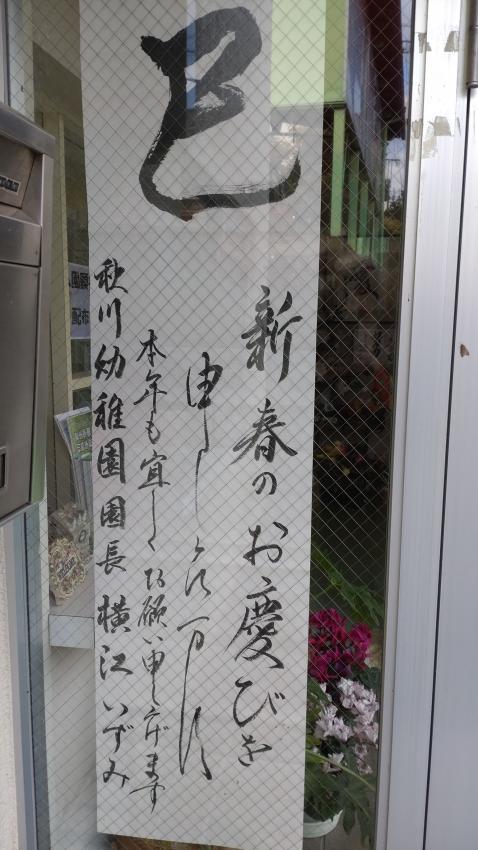 巳
新春のお慶びを
申し上げます
本年も宜しくお願い申し上げます
秋川幼稚園園長 横江いずみ
配布